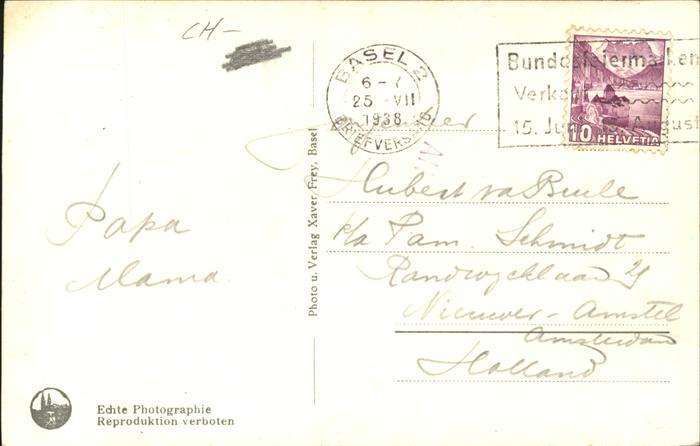 CH-
BASEL 2
6-
25 VII
1938
BRIEFVERSAND
Bundesfeiermarken
Verkauf
15. Juli August
10 HELVETIA
Papa
Mama
Photo u. Verlag Xaver Frey, Basel
Hubert
p/a Fam. Schmidt
Randwycklaan 29
Nieuwer-Amstel
Amsterdam
Holland
Echte Photographie
Reproduktion verboten